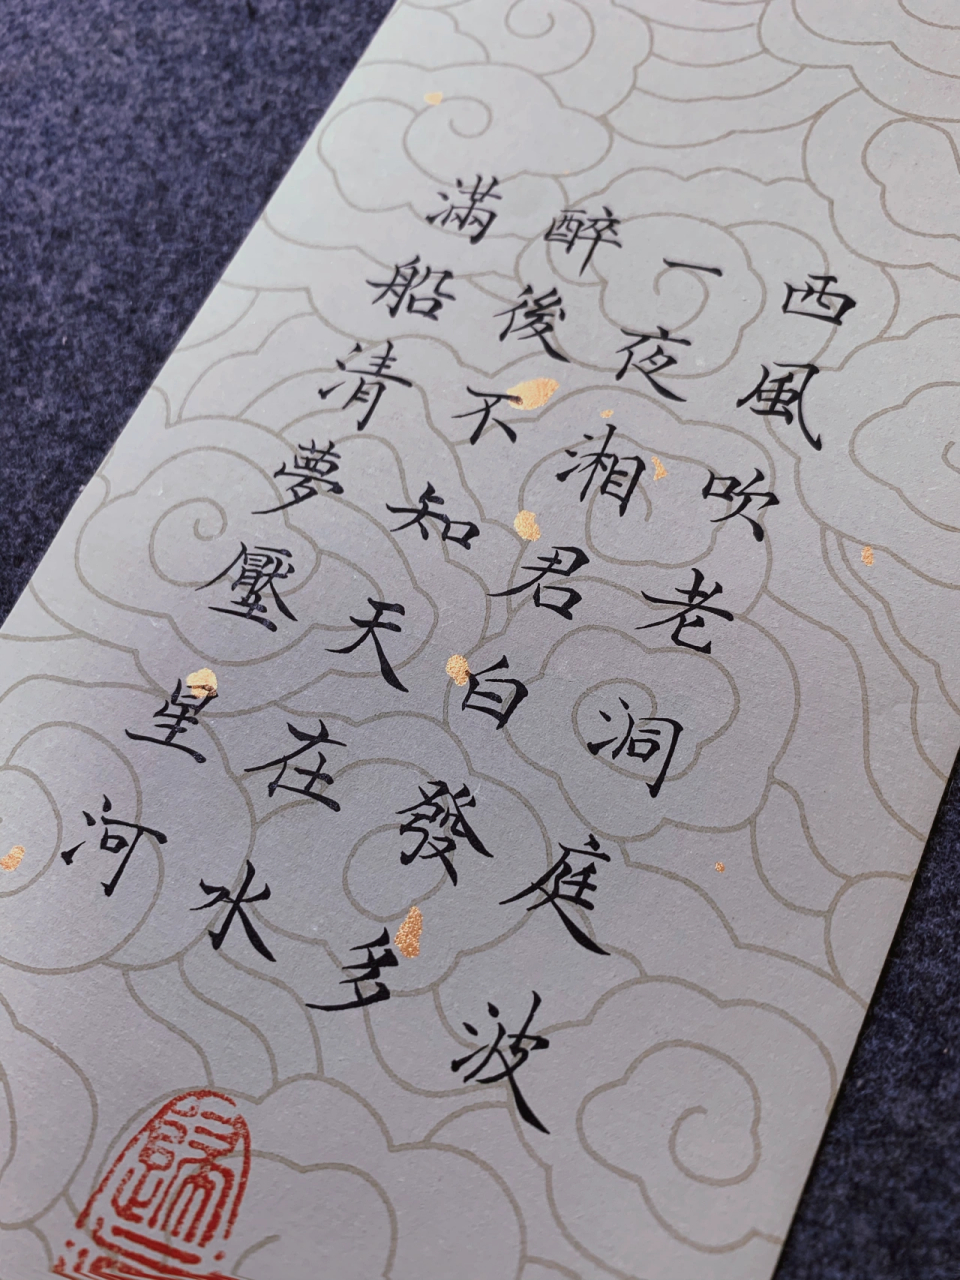 西風吹老洞庭波
一夜湘君白發多
醉後不知天在水
滿船清夢壓星河